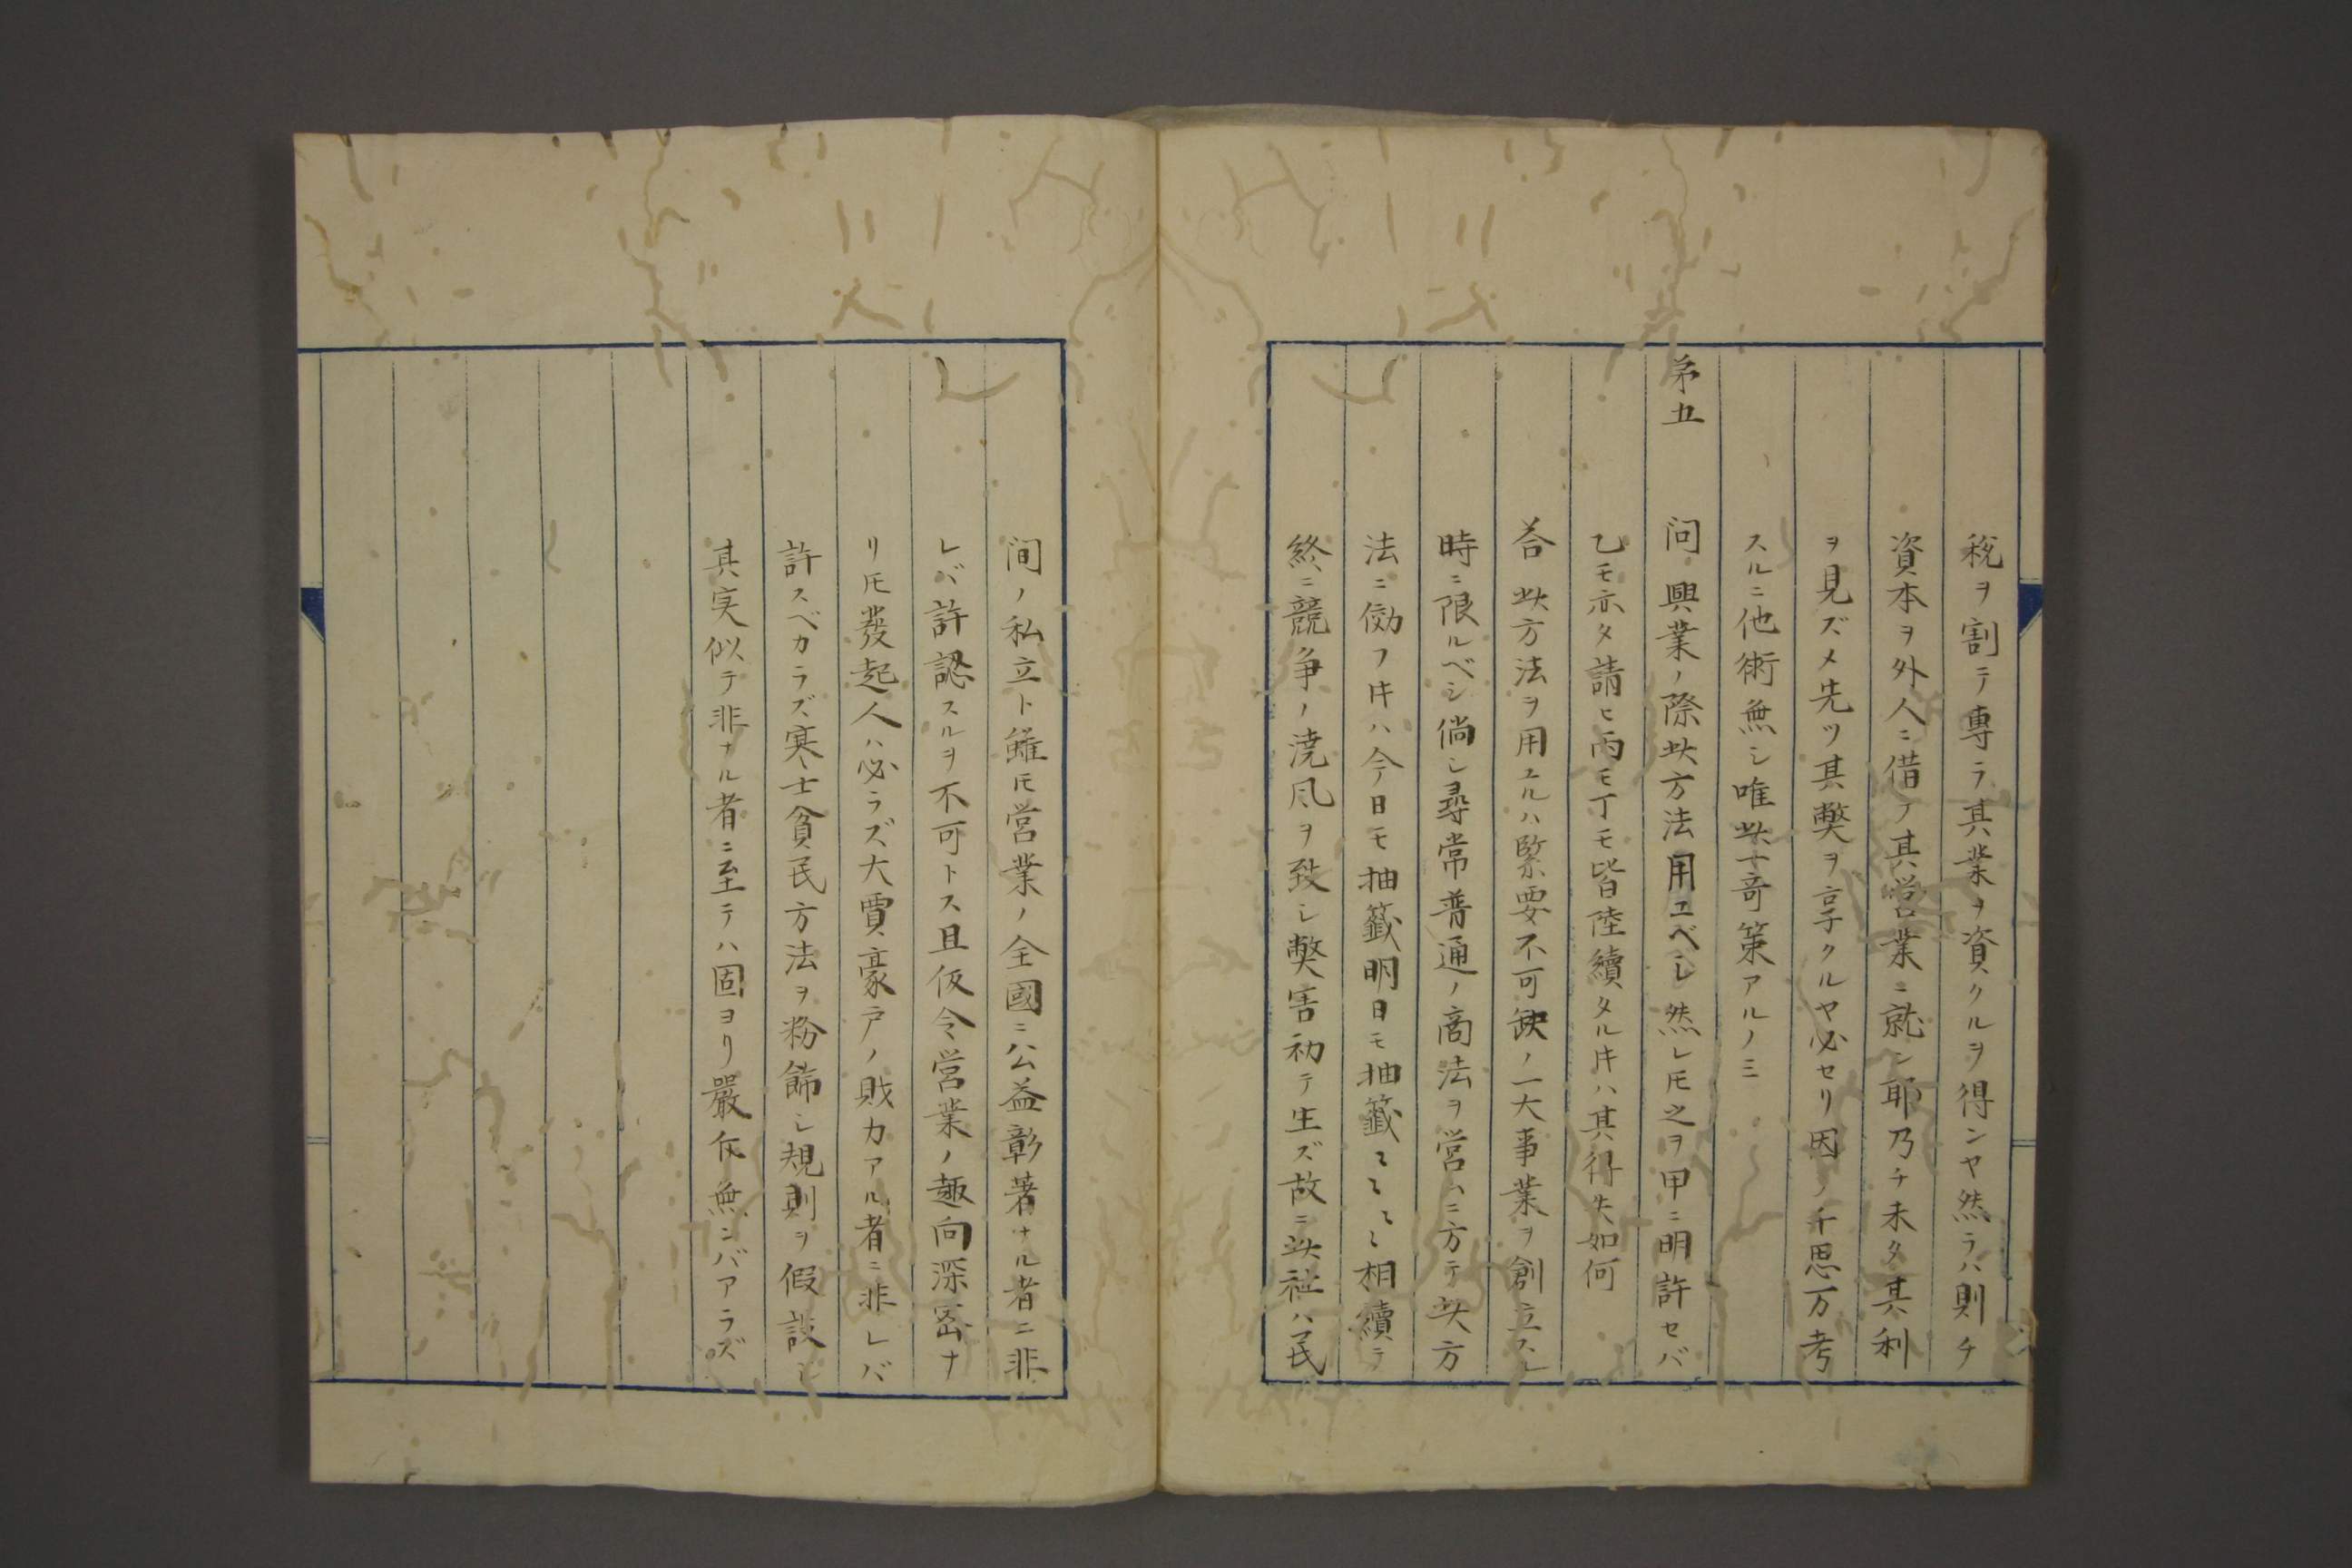 税ヲ割テ專ラ其業ヲ資クルヲ得ンヤ然ラハ則チ
資本ヲ外人ニ借テ其営業ニ就ン耶乃チ未タ其利
ヲ見ズメ先ツ其弊ヲ享クルヤ必セリ因ノ千思万考
スルニ他術無シ唯此一奇策アルノミ
第五 问 興業ノ際此方法用ユベシ然レ𪜈之ヲ甲ニ明許セバ
乙モ亦タ請ヒ丙モ丁モ皆陸續タルキハ其得失如何
荅 此方法ヲ用ユルハ緊要不可缺ノ一大事業ヲ創立スル
時ニ限ルベシ倘シ尋常普通ノ商法ヲ営ムニ方テ此方
法ニ傚フキハ今日モ抽籤明日モ抽籤々々々々相續テ
終ニ競争ノ澆風ヲ致シ弊害初テ生ズ故ニ此社ハ民
间ノ私立ト雖𪜈営業ノ全國ニ公益彰著ナル者ニ非
レバ許認スルヲ不可トス且仮令営業ノ趣向深密ナ
リ𪜈發起人ハ必ラズ大賈豪戸ノ財力アル者ニ非レバ
許スベカラズ寒士貧民方法ヲ粉飾シ規則ヲ假設シ
其実似テ非ナル者ニ至テハ固ヨリ嚴仄無ンバアラズ